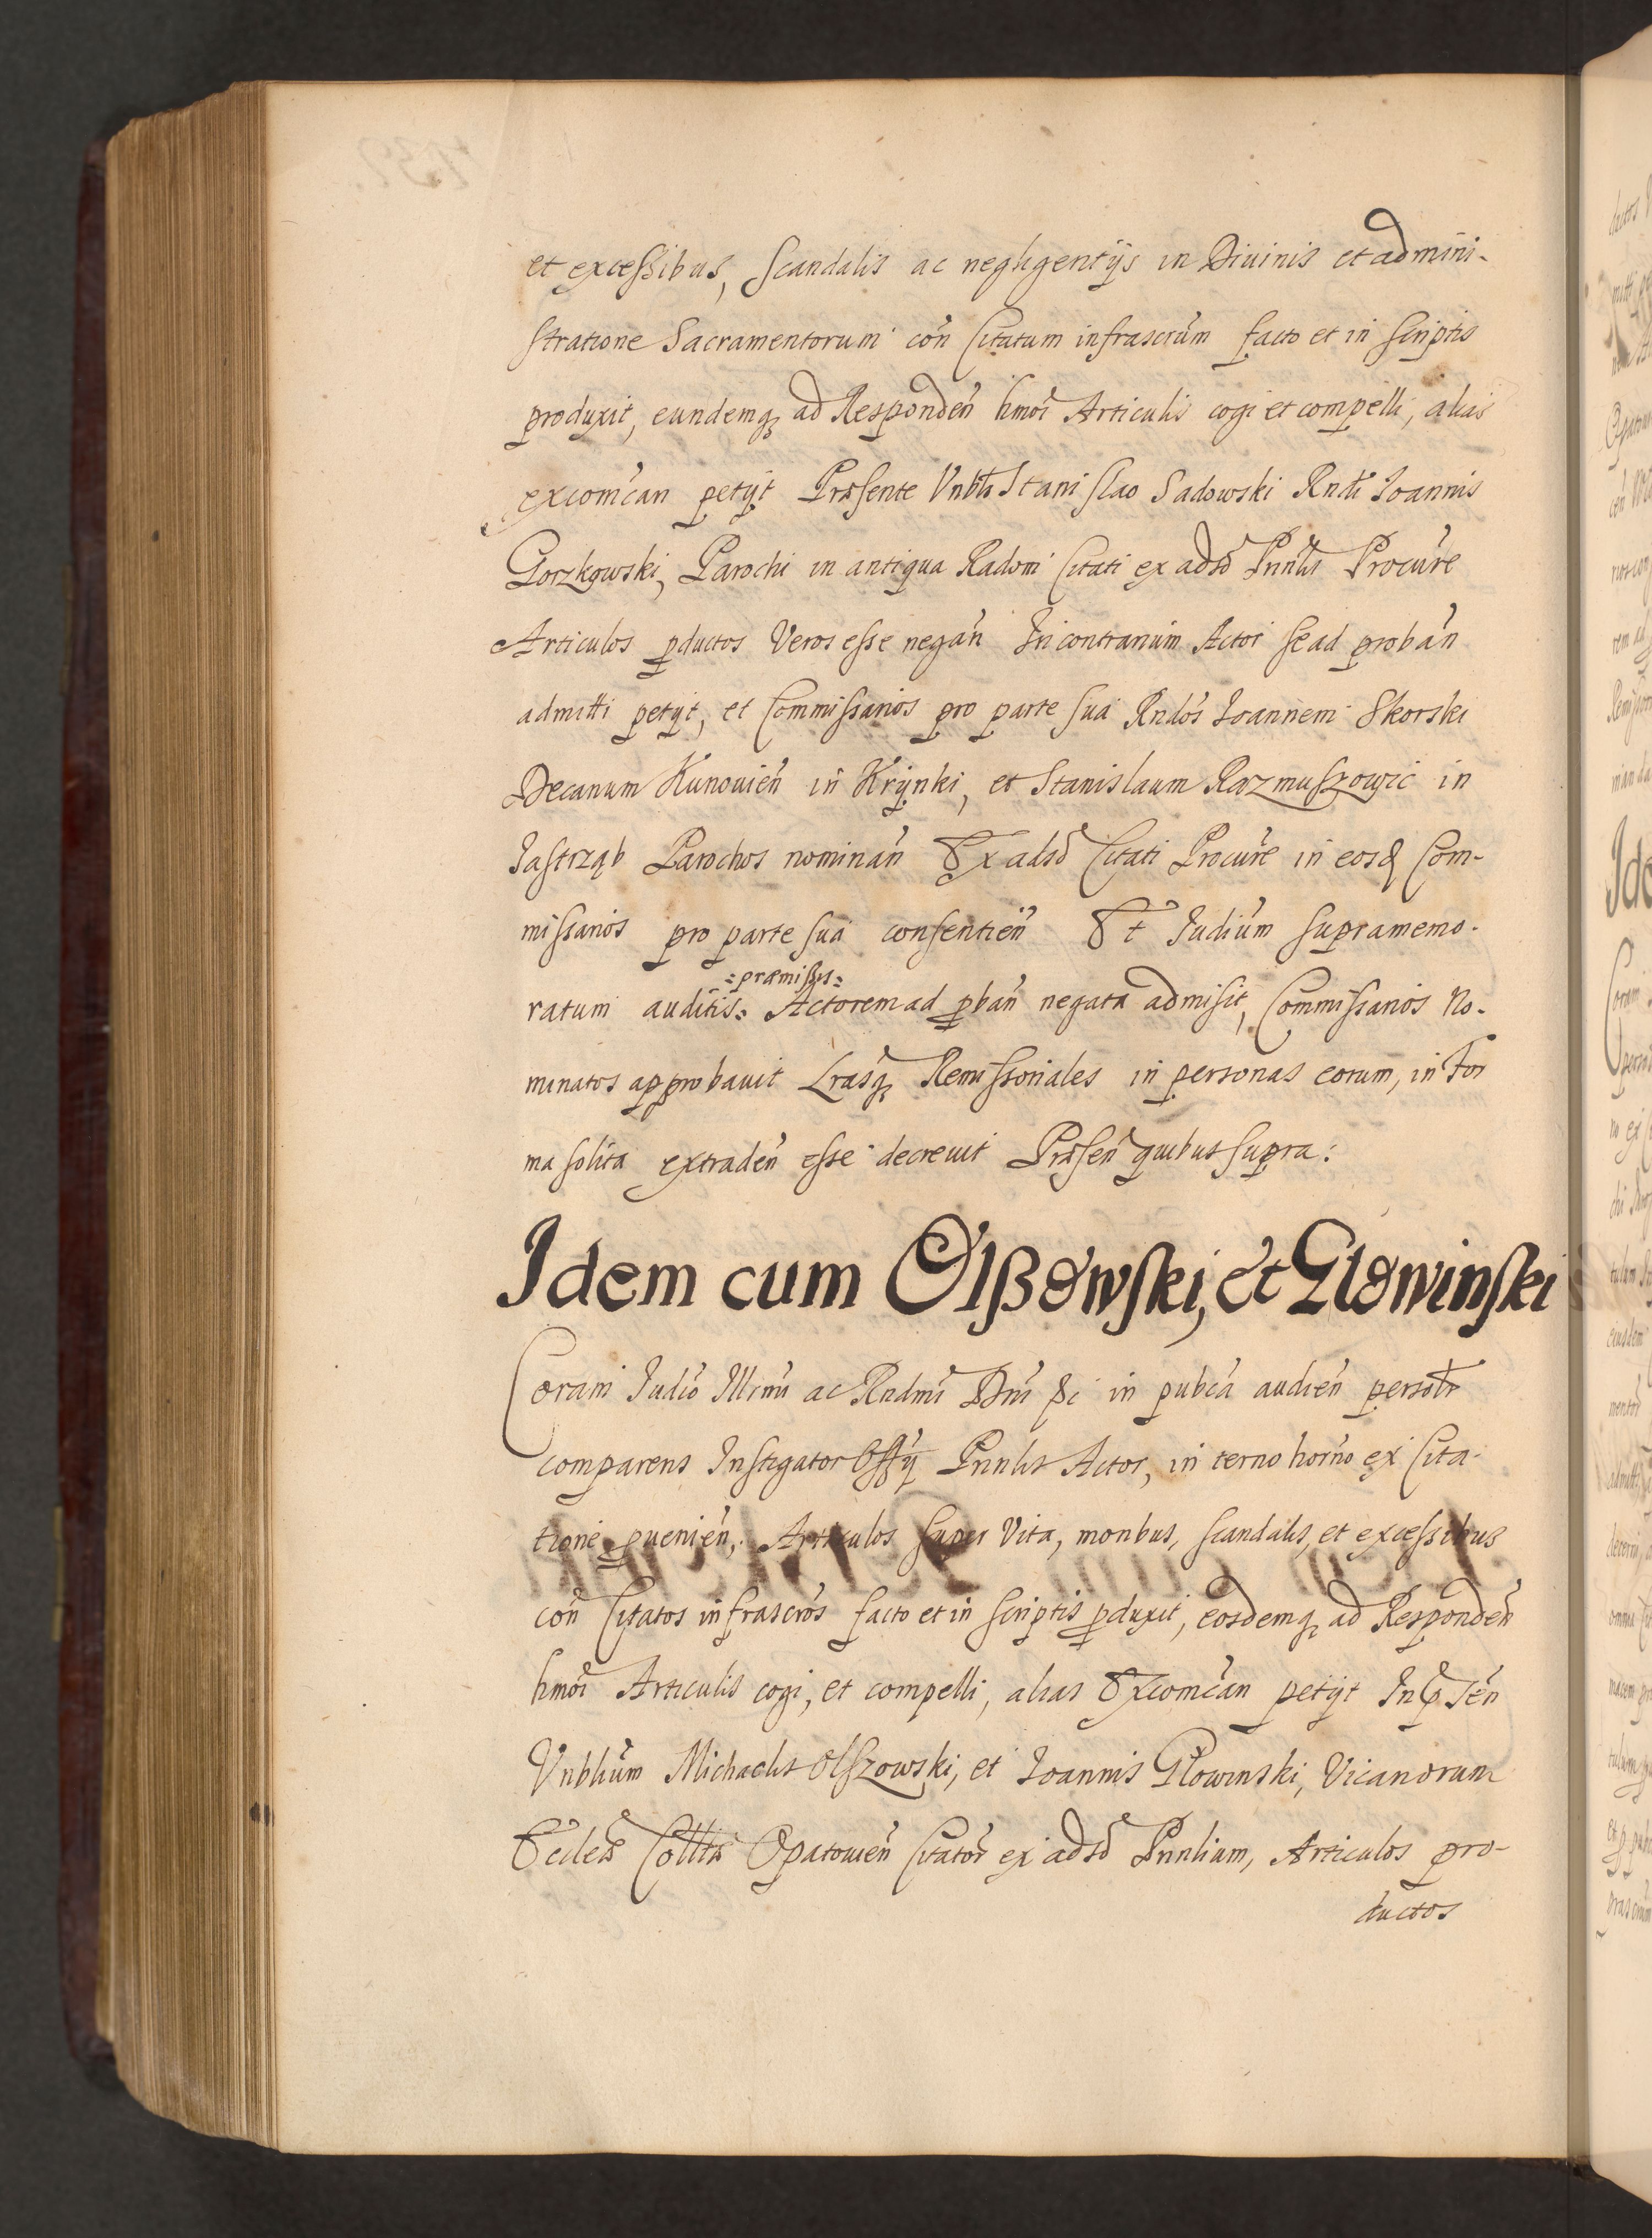 et excessibus, scandalis ac negligentijs in Diuinis et admini-
stratione Sacramentorum con̄ Citatum infrascr̄um facto et in scriptis
produxit, eundemq̨ ad Responden̄ hmōi Articulis cogi et compelli, alias
excom̄can petijt Præsente Vnbli Stanislao Sadowski Rndi Ioannis
Gorzkowski, Parochi in antiqua Radom Citati ex adso Prinlis Procūre
Articulos pductos Veros esse negan̄ In contrarium Actor se ad proban̄
admitti petijt, et Commissarios pro parte sua Rndos Ioannem Skorski
Decanum Kunouien̄ in Krijnki, et Stanislaum Razmuszowic in
Iastrząb Parochos nominan̄ Ex adso Citati Procūre in eosd Com-
missarios pro parte sua consentien̄ Et Iudiūm supramemo-
=præmissis=
ratum auditis= Actorem ad pban̄ negata admisit, Commissarios No-
minatos approbauit Lrasq̨ Remissoriales in personas eorum, in For
ma solita extraden̄ esse decreuit Præsen̄ quibus supra:
Idem cum Olszowski, et Głowinski
Coram Iudio Illrmi ac Rndmi Dni Epi in pubca audien̄ persotr
comparens Instigator Offij Prinlis Actor, in terno horno ex Cita-
tione puenien̄, Articulos super Vita, moribus, scandalis, et excessibus
con̄ Citatos infrascrōs facto et in scriptis pduxit, eosdemq̨ ad Responden̄
hmōi Articulis cogi, et compelli, alias Excomc̄an petijt In pten̄
Vnblium Michaelis Olszowski, et Ioannis Głowinski, Vicariorum
Eccleæ Collttæ Opatouien̄ Citator ex adso Prinlium, Articulos pro-
ductos